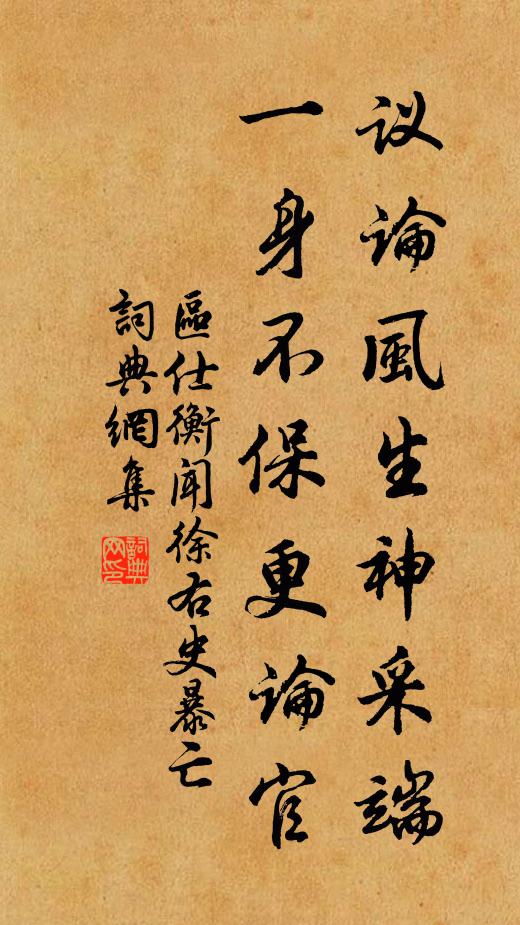 议論風生神采端
一身不保更論官
區仕衡闻徐右史暴亡
詞典網集
詞典网印